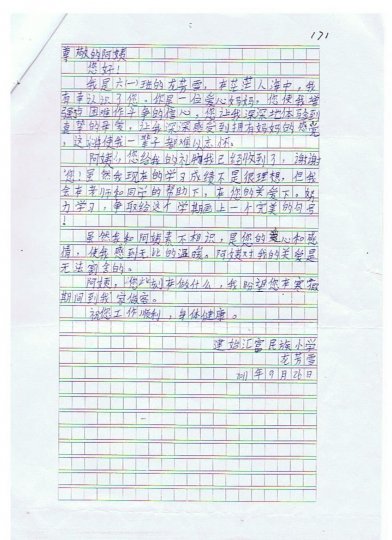 171
尊敬的阿姨
您好!
我是六(一)班的龙芳雪,在茫茫人海中,我
有幸认识了您,你是一位爱心妈妈,您使我增
强与困难作斗争的信心,您让我深深地体验到
真挚的母爱,让我深深感受到拥有妈妈的感觉
,这将使我一辈子都难以忘怀。
阿姨,您给我的礼物我已经收到了,谢谢
您!虽然我现在的学习成绩不是很理想,但我
会在老师和同学的帮助下,在您的关爱下,努
力学习,争取给这个学期画上一个完美的句号
!
虽然我和阿姨素不相识,是您的爱心和感
情,使我感到无比的温暖。阿姨对我的关爱是
无法割舍的。
阿姨,您计划在做什么,我盼望您在寒假
期间到我家做客。
祝您工作顺利,身体健康。
建始汇富民族小学
龙芳雪
2011年9月26日